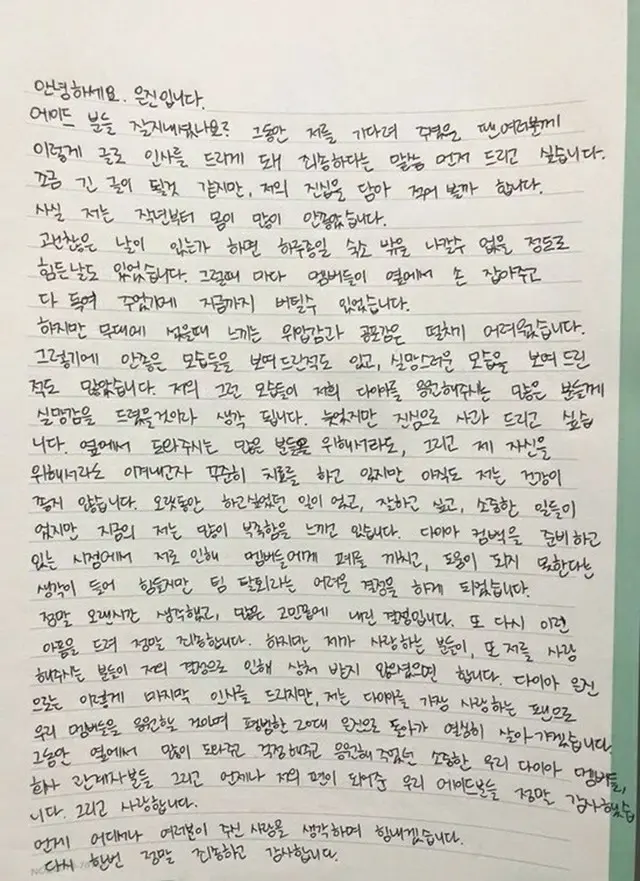 안녕하세요. 은진입니다.
에이드 분들 잘지내셨나요? 그동안 저를 기다려 주셨을 땐데 여러분께
이렇게 글로 인사를 드리게 돼 죄송하다는 말씀 먼저 드리고 싶습니다.
조금 긴 글이 될것 같지만, 저의 진심을 담아 적어 볼까 합니다.
사실 저는 작년부터 몸이 많이 안좋았습니다.
괜찮은 날이 있는가 하면 하루종일 숙소 밖을 나갈수 없을 정도로
힘든날도 있었습니다. 그럴때 마다 멤버들이 옆에서 손 잡아주고
다독여 주었기에 지금까지 버틸수 있었습니다.
하지만 무대에 섰을때 느끼는 위압감과 공포감은 떨치기 어려웠습니다.
그렇기에 안좋은 모습들을 보여드린적도 있고, 실망스러운 모습을 보여 드린
적도 많았습니다. 저의 그런 모습들이 저희 다이아를 응원해주시는 많은 분들께
실망감을 드렸을것이라 생각 됩니다. 늦었지만 진심으로 사과 드리고 싶습
니다. 옆에서 도와주시는 많은 분들을 위해서라도, 그리고 제 자신을
위해서라도 이겨내고자 꾸준히 치료를 하고 있지만 아직도 저는 건강이
좋지 않습니다. 오랫동안 하고싶었던 일이 었고, 잘하고 싶고, 소중한 일들이
었지만 지금의 저는 많이 부족함을 느끼고 있습니다. 다이아 컴백을 준비하고
있는 시점에서 저로 인해 멤버들에게 폐를 끼치고, 도움이 되지 못한다는
생각이 들어 힘들지만 팀 탈퇴라는 어려운 결정을 하게 되었습니다.
정말 오랜시간 생각했고, 많은 고민끝에 내린 결정입니다. 또 다시 이런
아픔을 드려 정말 죄송합니다. 하지만 제가 사랑하는 분들이, 또 저를 사랑
해주시는 분들이 저의 결정으로 인해 상처 받지 않으셨으면 합니다. 다이아 은진
으로는 이렇게 마지막 인사를 드리지만, 저는 다이아를 가장 사랑하는 팬으로
우리 멤버들을 응원할 것이며 평범한 20대 은진으로 돌아가 열심히 살아가겠습니다.
그동안 옆에서 많이 도와주고 걱정해주고 응원해 주었던 소중한 우리 다이아 멤버들,
회사 관계자분들 그리고 언제나 저의 편이 되어준 우리 에이드분들 정말 감사했습
니다. 그리고 사랑합니다.
언제 어디서나 여러분이 주신 사랑을 생각하며 힘내겠습니다.
다시 한번 정말 죄송하고 감사합니다.